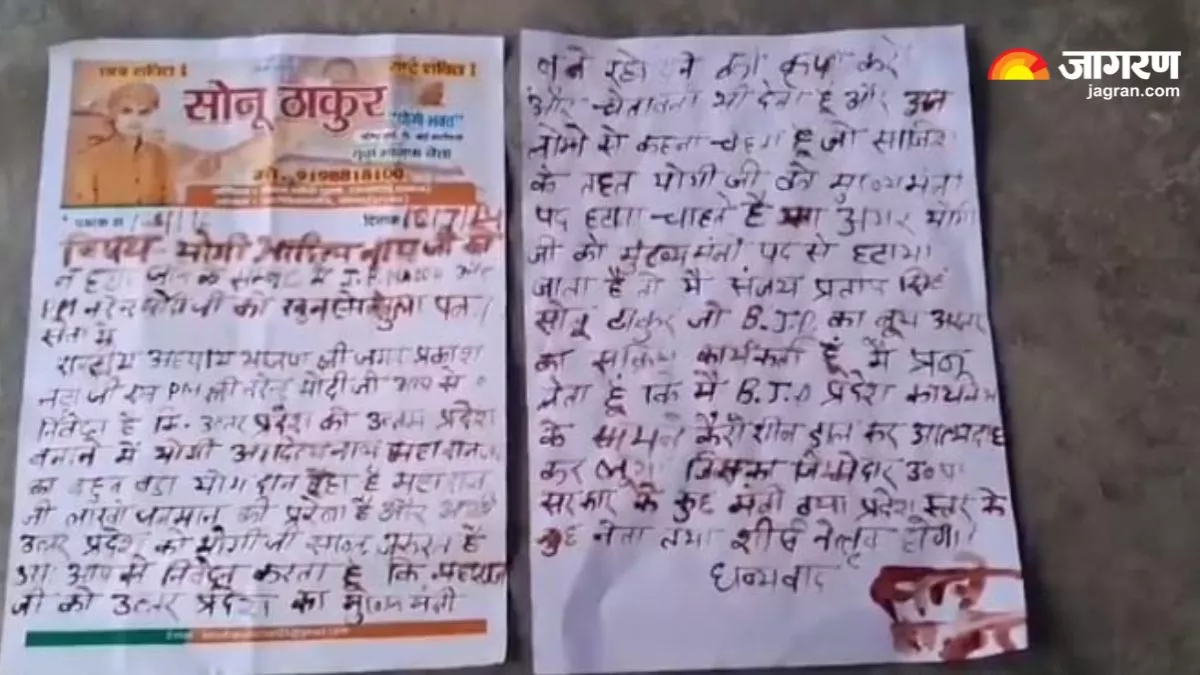 सोनू ठाकुर
"योगी भक्त"
मो. 9198818100
दिनांक
विषय - योगी आदित्य नाथ जी को
न हटाए जाने के सम्बन्ध में J.P. Nadda और
P.M नरेन्द्र मोदी जी को खून से खुला पत्र
सेवा में
राष्ट्रीय अध्यक्ष भाजपा श्री जगत प्रकाश
नड्डा जी एवं PM श्री नरेन्द्र मोदी जी आप से
निवेदन है कि उत्तर प्रदेश को उत्तम प्रदेश
बनाने में योगी आदित्यनाथ महाराज
का बहुत बडा योगदान रहा है महाराज
जी लाखो की प्रेरेता है और
उत्तर प्रदेश को योगीजी जरुरत है
आप से निवेदन करता हू कि महाराज
जी को उत्तर प्रदेश का मुख्य मंत्री
बने रहने की कृपा करें
और चेतावनी भी देता हू और उन
लोगो से कहना चहता हू जो साजिश
के तहत योगी जी को मुख्यमंत्री
पद हटाना चाहते है अगर योगी
जी को मुख्यमंत्री पद से हटाया
जाता है तो मै संजय प्रताप सिंह
सोनू ठाकुर जो B.J.P का बूथ अध्यक्ष
का सक्रिय कार्यकर्ता हूं मैं प्रण
लेता हूं कि मै B.J.P प्रदेश कार्यालय
के सामने कैरोशीन डाल कर आत्मदाह
कर लूंगा जिसका जिम्मेदार उ०प्र०
सरकार के कुछ मंत्री तथा प्रदेश स्तर के
कुछ नेता तथा शीर्ष नेतृत्व होगा।
धन्यवाद
जागरण
jagran.com